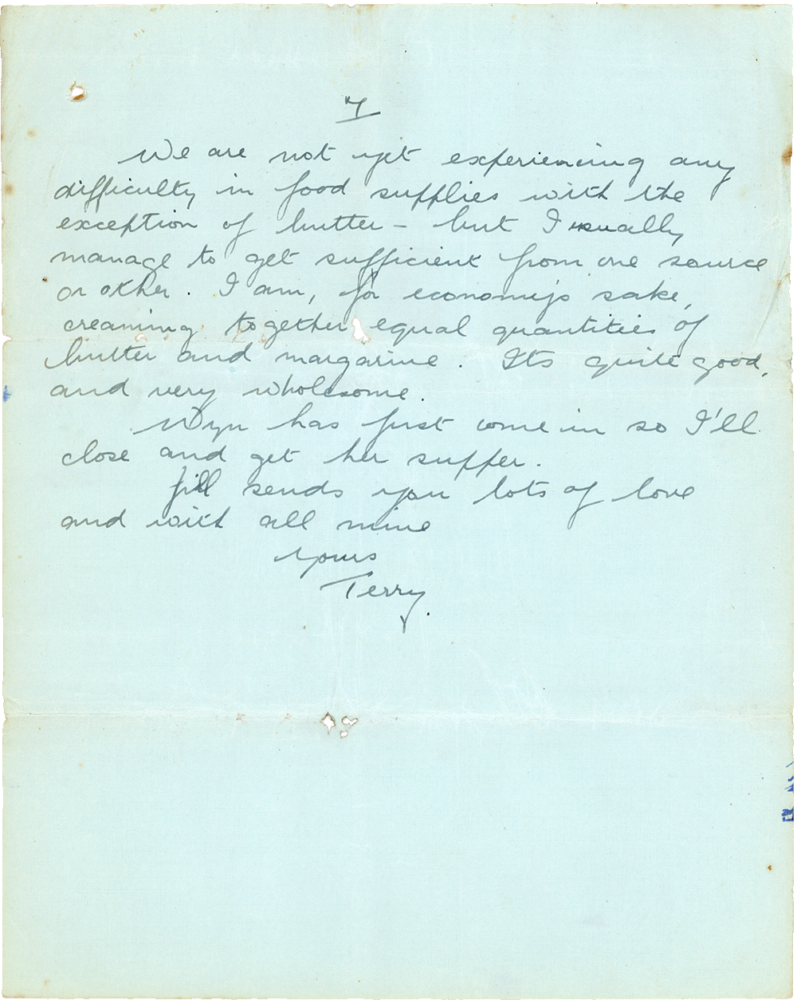 7
We are not yet experiencing any
difficulty in food supplies with the
exception of butter - but I usually
manage to get sufficient from one source
or other. I am, for economy's sake,
creaming together equal quantities of
butter and margarine. Its quite good,
and very wholesome.
Wyn has just come in so I'll
close and get her supper.
Jill sends you lots of love
and with all mine
Yours
Terry.